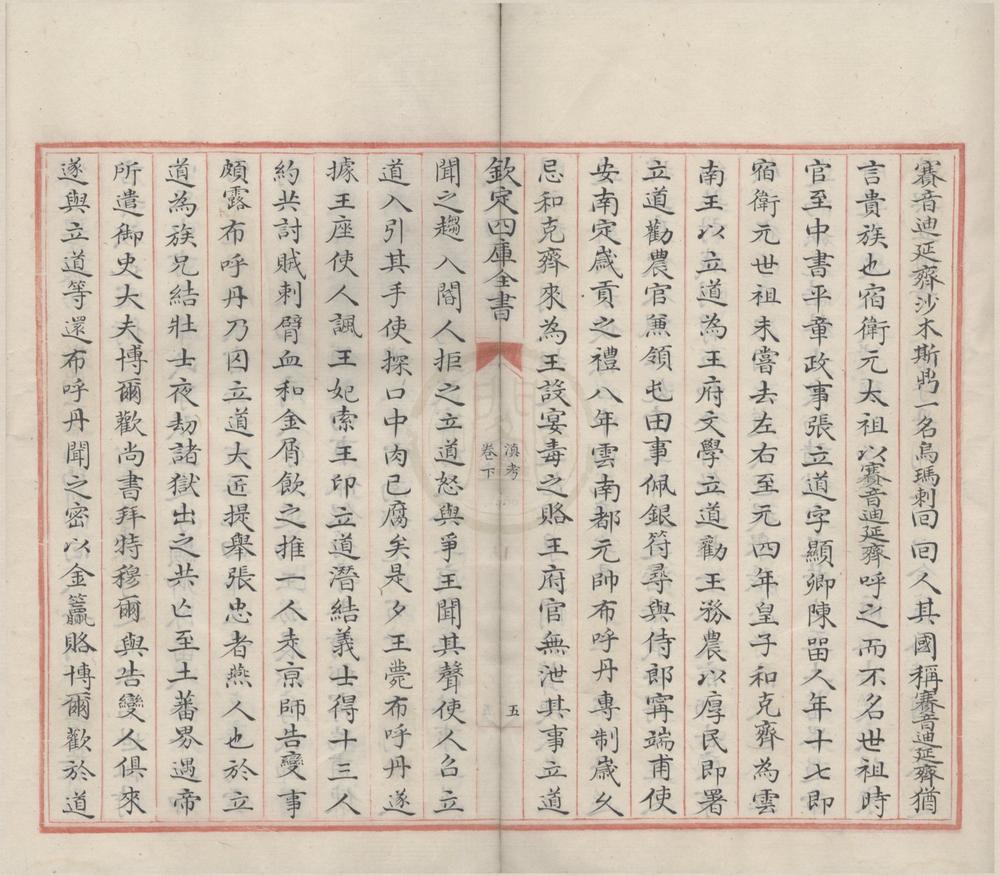 賽音迪延齊沙木斯鼎一名烏瑪剌回回人其國稱賽音迪延齊猶
言貴族也宿衛元太祖以賽音迪延齊呼之而不名世祖時
官至中書平章政事張立道字顯卿陳留人年十七即
宿衛元世祖未嘗去左右至元四年皇子和克齊為雲
南王以立道為王府文學立道勸王務農以厚民即署
立道勸農官兼領屯田事佩銀符尋與侍郎甯端甫使
安南定歲貢之禮八年雲南都元帥布呼丹專制歲久
忌和克齊來為王設宴毒之賂王府官無泄其事立道
欽定四庫全書
滇考
卷下
五
聞之趨入閽人拒之立道怒與爭王聞其聲使人召立
道入引其手使探口中肉已腐矣是夕王薨布呼丹遂
據王座使人諷王妃索王印立道潛結義士得十三人
約共討賊刺臂血和金屑飲之推一人走京師告變事
頗露布呼丹乃囚立道大匠提舉張忠者燕人也於立
道為族兄結壯士夜劫諸獄出之共亡至土蕃界遇帝
所遣御史大夫博爾歡尚書拜特穆爾與告變人俱來
遂與立道等還布呼丹聞之密以金籯賂博爾歡於道